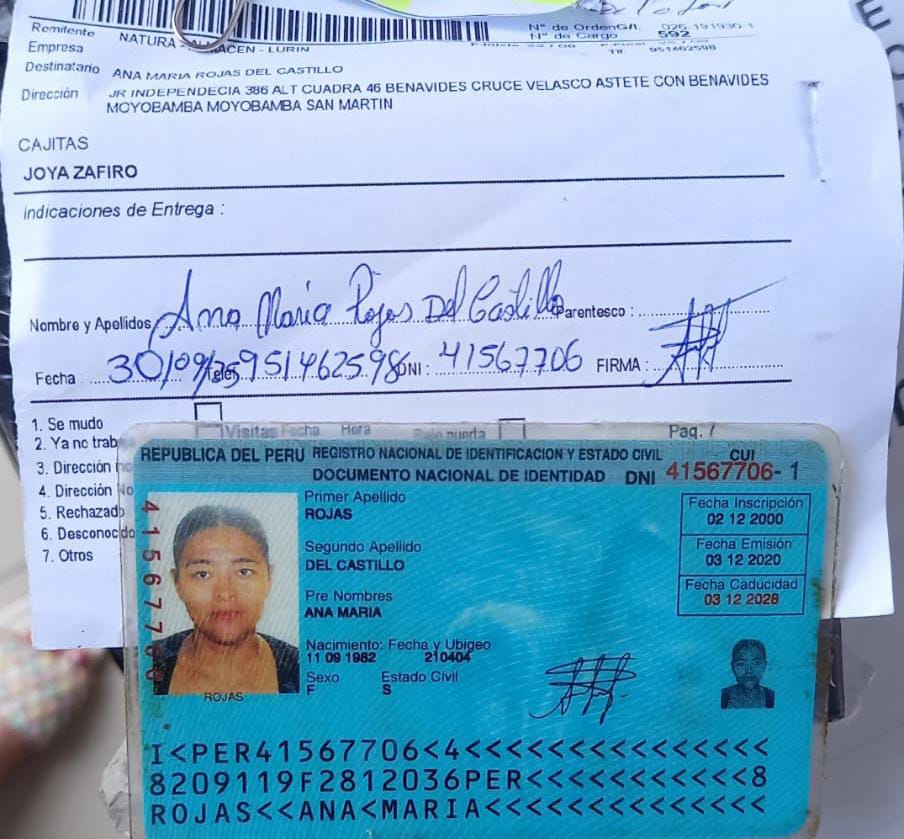 Remitente NATURA
Empresa ACEN - LURIN
Nº de Orden/G/I. 026-191930-1
Nº de Cargo 592
Tlf 951462598
Destinatario ANA MARIA ROJAS DEL CASTILLO
Dirección JR INDEPENDECIA 386 ALT CUADRA 46 BENAVIDES CRUCE VELASCO ASTETE CON BENAVIDES
MOYOBAMBA MOYOBAMBA SAN MARTIN
CAJITAS
JOYA ZAFIRO
Indicaciones de Entrega :
Nombre y Apellidos Ana Maria Rojas Del Castillo Parentesco :
Fecha 30/09/25 Telef 951462598 DNI : 41567706 FIRMA :
1. Se mudo
Visitas Fecha Hora Bajo puerta Pag. /
2. Ya no trab
3. Dirección
4. Dirección
5. Rechazado
6. Desconocido
7. Otros
REPUBLICA DEL PERU REGISTRO NACIONAL DE IDENTIFICACION Y ESTADO CIVIL CUI
DOCUMENTO NACIONAL DE IDENTIDAD DNI 41567706-1
Primer Apellido
ROJAS
Segundo Apellido
DEL CASTILLO
Pre Nombres
ANA MARIA
Nacimiento: Fecha y Ubigeo
11 09 1982 210404
Sexo Estado Civil
F S
Fecha Inscripción
02 12 2000
Fecha Emisión
03 12 2020
Fecha Caducidad
03 12 2028
41567706
ROJAS
I<PER41567706<4<<<<<<<<<<<<<<<
8209119F2812036PER<<<<<<<<<<<8
ROJAS<<ANA<MARIA<<<<<<<<<<<<<<